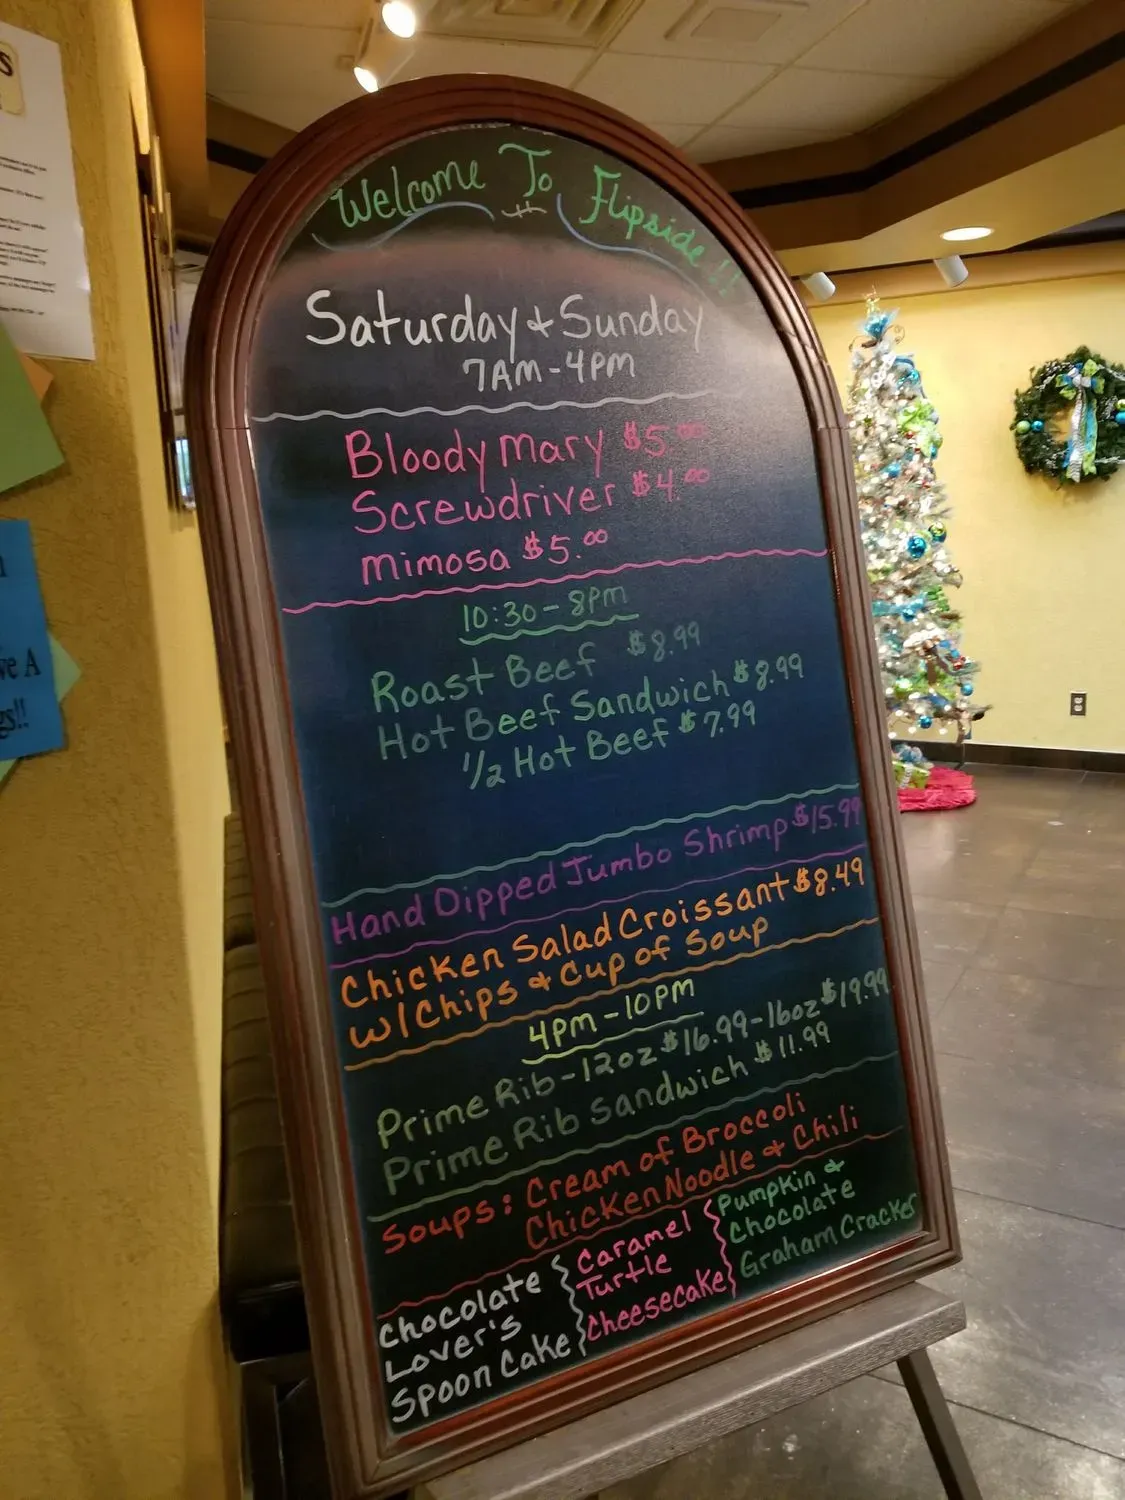 Welcome To Flipside!!
Saturday & Sunday
7AM-4PM
Bloody Mary $5.00
Screwdriver $4.00
Mimosa $5.00
10:30-8PM
Roast Beef $8.99
Hot Beef Sandwich $8.99
1/2 Hot Beef $7.99
Hand Dipped Jumbo Shrimp $15.99
Chicken Salad Croissant $8.49
w/Chips & Cup of Soup
4PM-10PM
Prime Rib-12oz $16.99-16oz $19.99
Prime Rib Sandwich $11.99
Soups: Cream of Broccoli
Chicken Noodle & Chili
Chocolate
Lover's
Spoon Cake
Caramel
Turtle
Cheesecake
Pumpkin &
Chocolate
Graham Cracker